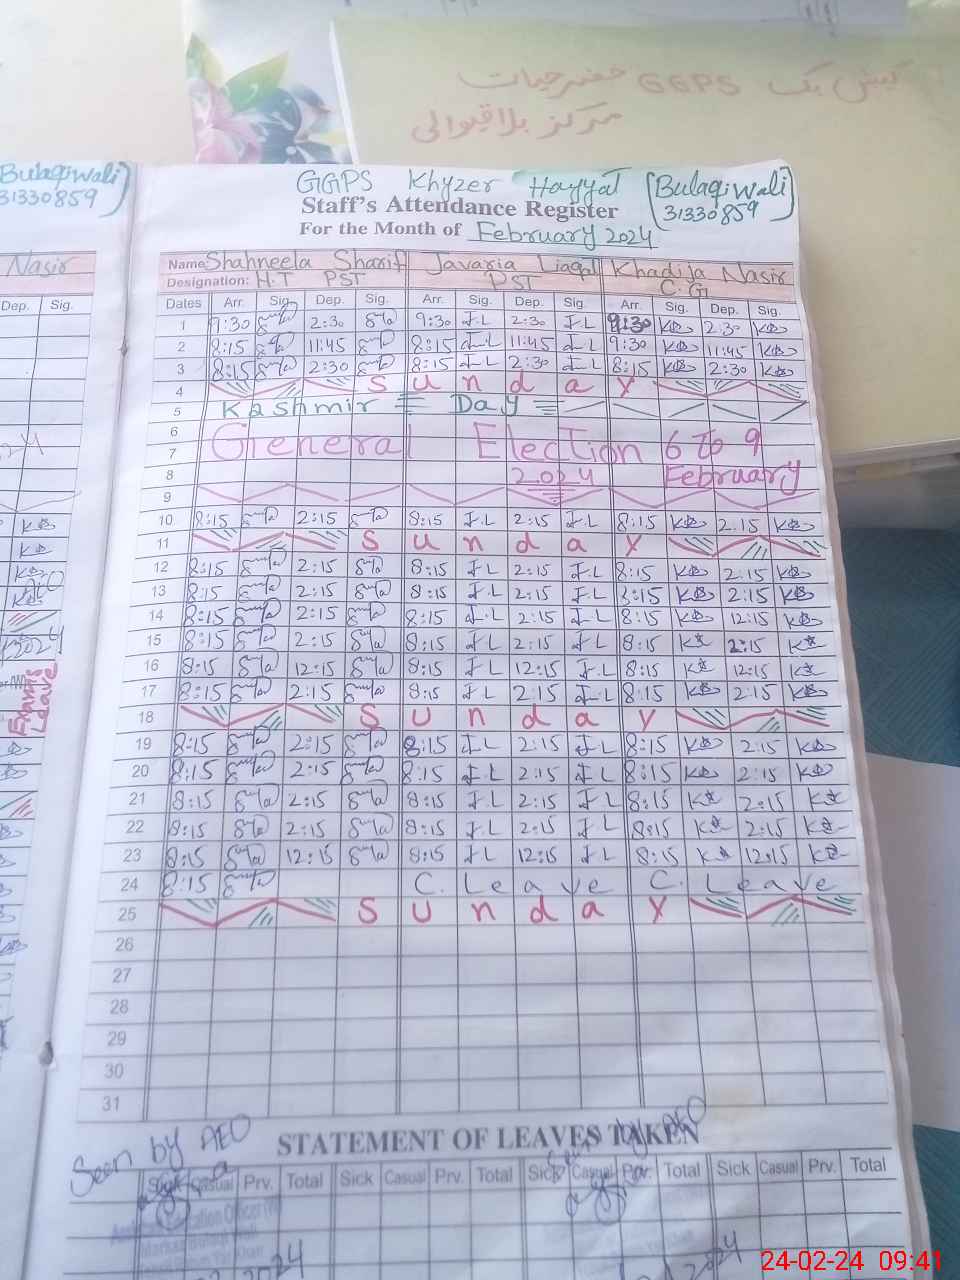 کیش بک GGPS خضر حیات
مرکز بلاقیوالی
Bulaqiwali)
31330859
GGPS Khyzer Hayyat (Bulaqiwali)
31330859
Staff's Attendance Register
For the Month of February 2024
Nasir
Name Shahneela Sharif Javaria Liaqat Khadija Nasir
Designation: H.T PST PST C.G
Dep. Sig.
Dates Arr. Sig. Dep. Sig. Arr. Sig. Dep. Sig. Arr. Sig. Dep. Sig.
1 9:30 2:30 9:30 J.L 2:30 J.L 9:30 KB 2:30 KB
2 8:15 11:45 8:15 J.L 11:45 J.L 9:30 KB 11:45 KB
3 8:15 2:30 8:15 J.L 2:30 J.L 8:15 KB 2:30 KB
4 Sunday
5 Kashmir Day
6
7 General Election 6 to 9
8 2024 February
9
10 8:15 2:15 8:15 J.L 2:15 J.L 8:15 KB 2:15 KB
11 Sunday
12 8:15 2:15 8:15 J.L 2:15 J.L 8:15 KB 2:15 KB
13 8:15 2:15 8:15 J.L 2:15 J.L 8:15 KB 2:15 KB
14 8:15 2:15 8:15 J.L 2:15 J.L 8:15 KB 12:15 KB
15 8:15 2:15 8:15 J.L 2:15 J.L 8:15 2:15
16 8:15 12:15 8:15 J.L 12:15 J.L 8:15 12:15
17 8:15 2:15 8:15 J.L 2:15 J.L 8:15 KB 2:15 KB
Exams Leave
18 Sunday
19 8:15 2:15 8:15 J.L 2:15 J.L 8:15 KB 2:15 KB
20 8:15 2:15 8:15 J.L 2:15 J.L 8:15 KB 2:15 KB
21 8:15 2:15 8:15 J.L 2:15 J.L 8:15 2:15
22 8:15 2:15 8:15 J.L 2:15 J.L 8:15 2:15
23 8:15 12:15 8:15 J.L 12:15 J.L 8:15 12:15
24 8:15 C. Leave C. Leave
25 Sunday
26
27
28
29
30
31
Seen by AEO
STATEMENT OF LEAVES TAKEN
Seen by AEO
Sick Casual Prv. Total Sick Casual Prv. Total Sick Casual Prv. Total Sick Casual Prv. Total
24-02-24 09:41